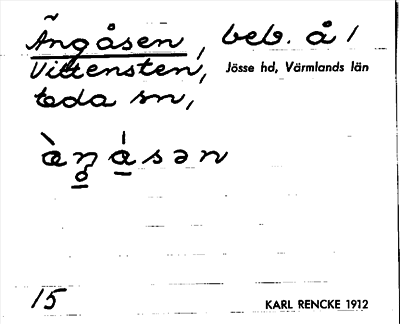 Ängåsen, beb. å /
Vittensten, Jösse hd, Värmlands län
Eda sn,
àŋåsən
15 KARL RENCKE 1912